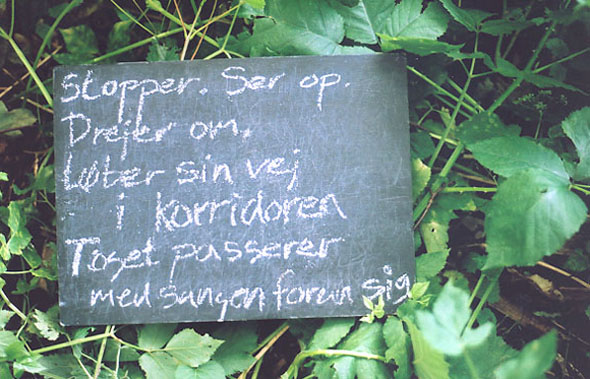 Stopper. Ser op.
Drejer om.
Løber sin vej
i korridoren
Toget passerer
med sangen foran sig